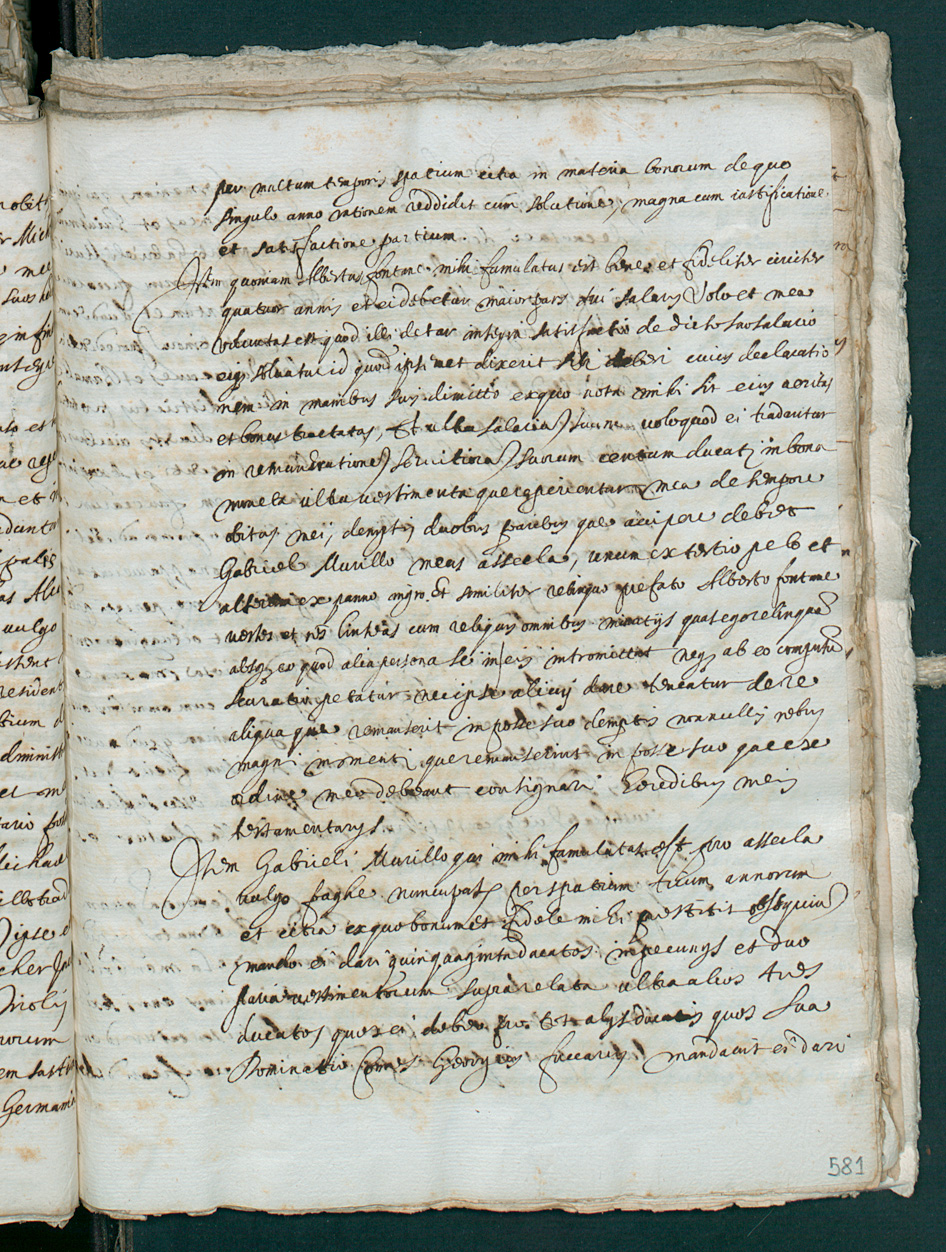 per multum temporis spatium citra in materia bonorum de quo
singulo anno rationem reddidit cum solutione, magna cum iustificatione
et satisfactione partium.
Item quoniam Albertus fontane mihi famulatus est bene et fideliter circiter
quatuor annis et ei debetur maior pars sui salarij Volo et mea
voluntas est quod illi detur integra satisfactio de dicto suo salario
eiq; solvatur id quod ipsi met dixerit sibi deberi cuius declaratio
nem in manibus suis dimitto ex quo nota mihi sit eius veritas
et bonus tractatus, Et ultra salarium suum volo quod ei tradantur
in remunerationem servitiorum suorum centum ducatj in bona
moneta ultra vestimenta que reperientur mea de tempore
obitus mei, demptis duobus paribus que accipere debet
Gabriel Murillo meus assecla, unum ex tertio pelo et
alterum ex panno nigro. Et similiter relinquo prefato Alberto fontane
vestes et res linteas cum reliquis omnibus minutijs quas ego relinquam
absq; eo quod alia persona se in eis intromittat neq; ab eo computum
petatur nec ipse alicui dare teneatur de re
aliqua que remanserit in posse suo demptis nonnullis rebus
magni momenti que remanserint in posse suo que ex
ordine meo debeant consignari heredibus meis
testamentarijs.
Item Gabrieli Murillo qui mihi famulatus est pro assecla
vulgo faghe nuncupato per spatium trium annorum
et citra ex quo bonum et fidele mihi prestitit obsequium
mando ei dari quinquaginta ducatos in pecunijs et duo
paria vestimentorum supra relata ultra alios tres
ducatos quos ei debeo pro tot alijs ducatis quos sua
Dominatio Comes Georgius fuccarus mandavit ei dari
581